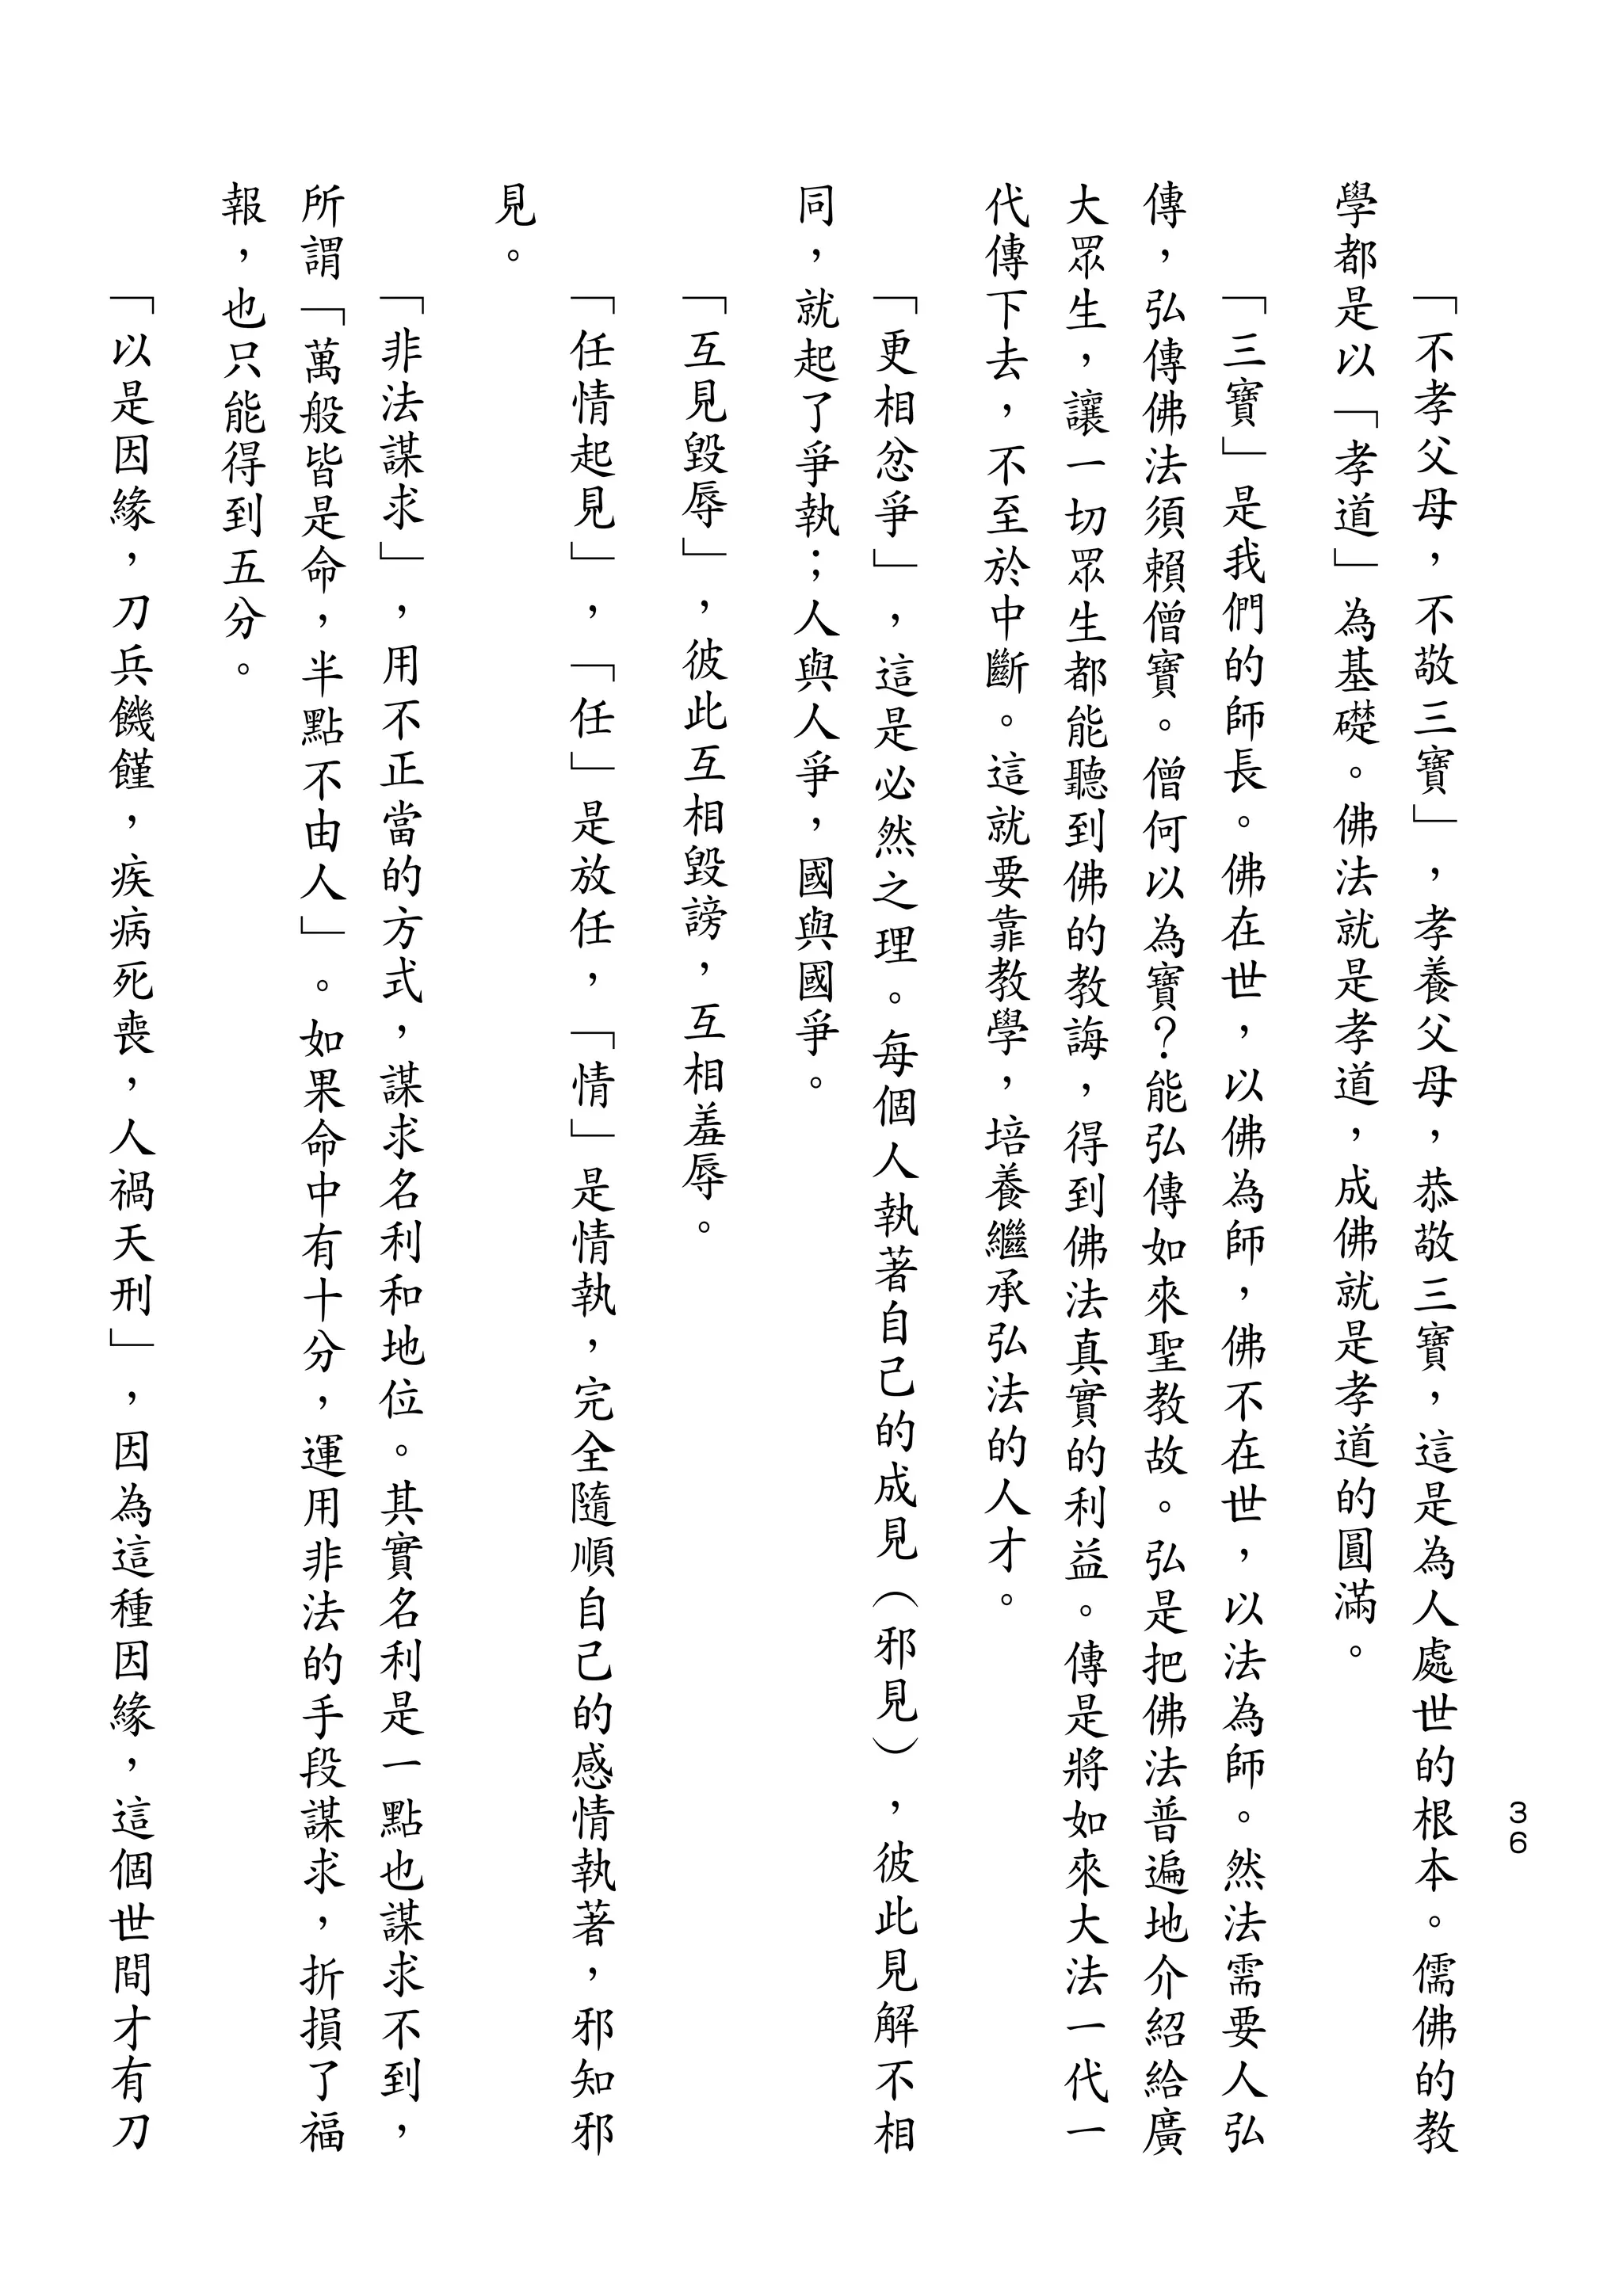 36
「不孝父母，不敬三寶」，孝養父母，恭敬三寶，這是為人處世的根本。儒佛的教
學都是以「孝道」為基礎。佛法就是孝道，成佛就是孝道的圓滿。
「三寶」是我們的師長。佛在世，以佛為師，佛不在世，以法為師。然法需要人弘
傳，弘傳佛法須賴僧寶。僧何以為寶？能弘傳如來聖教故。弘是把佛法普遍地介紹給廣
大眾生，讓一切眾生都能聽到佛的教誨，得到佛法真實的利益。傳是將如來大法一代一
代傳下去，不至於中斷。這就要靠教學，培養繼承弘法的人才。
「更相忿爭」，這是必然之理。每個人執著自己的成見（邪見），彼此見解不相
同，就起了爭執；人與人爭，國與國爭。
「互見毀辱」，彼此互相毀謗，互相羞辱。
「任情起見」，「任」是放任，「情」是情執，完全隨順自己的感情執著，邪知邪
見。
「非法謀求」，用不正當的方式，謀求名利和地位。其實名利是一點也謀求不到，
所謂「萬般皆是命，半點不由人」。如果命中有十分，運用非法的手段謀求，折損了福
報，也只能得到五分。
「以是因緣，刀兵饑饉，疾病死喪，人禍天刑」，因為這種因緣，這個世間才有刀